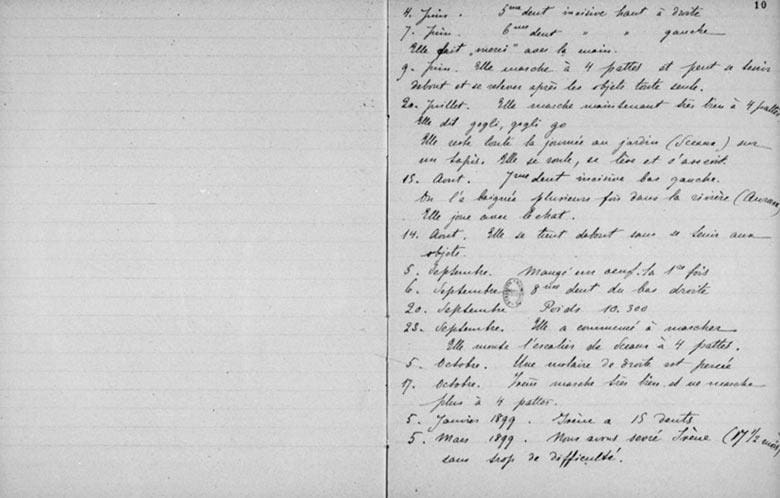 10
4. Juin. 5me dent incisive haut à droite
7. Juin. 6me dent " " gauche
Elle fait "merci" avec la main.
9. Juin. Elle marche à 4 pattes et peut se tenir
debout et se relever après les objets toute seule.
20. Juillet. Elle marche maintenant très bien à 4 pattes
Elle dit gogli, gogli go
Elle reste toute la journée au jardin (Sceaux) sur
un tapis. Elle se roule, se lève et s'asseoit
15. Aout. 7me dent incisive bas gauche.
On l'a baignée plusieurs fois dans la rivière
Elle joue avec le chat.
14. Aout. Elle se tient debout sans se tenir aux
objets.
5. Septembre. Mangé un oeuf la 1re fois
6. Septembre 8me dent du bas droite
20. Septembre Poids 10.300
23. Septembre. Elle a commencé à marcher
Elle monte l'escalier de Sceaux à 4 pattes.
5. Octobre. Une molaire de droite est percée
17. Octobre. Irène marche très bien et ne marche
plus à 4 pattes.
5. Janvier 1899. Irène a 15 dents
5. Mars 1899. Nous avons sevré Irène (17 1/2 mois)
sans trop de difficulté.